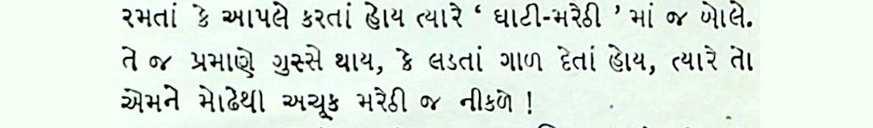 રમતાં કે આપલે કરતાં હોય ત્યારે ‘ ઘાટી-મરેઠી ’ માં જ બોલે.
તે જ પ્રમાણે ગુસ્સે થાય, કે લડતાં ગાળ દેતાં હોય, ત્યારે તો
એમને મોઢેથી અચૂક મરેઠી જ નીકળે !